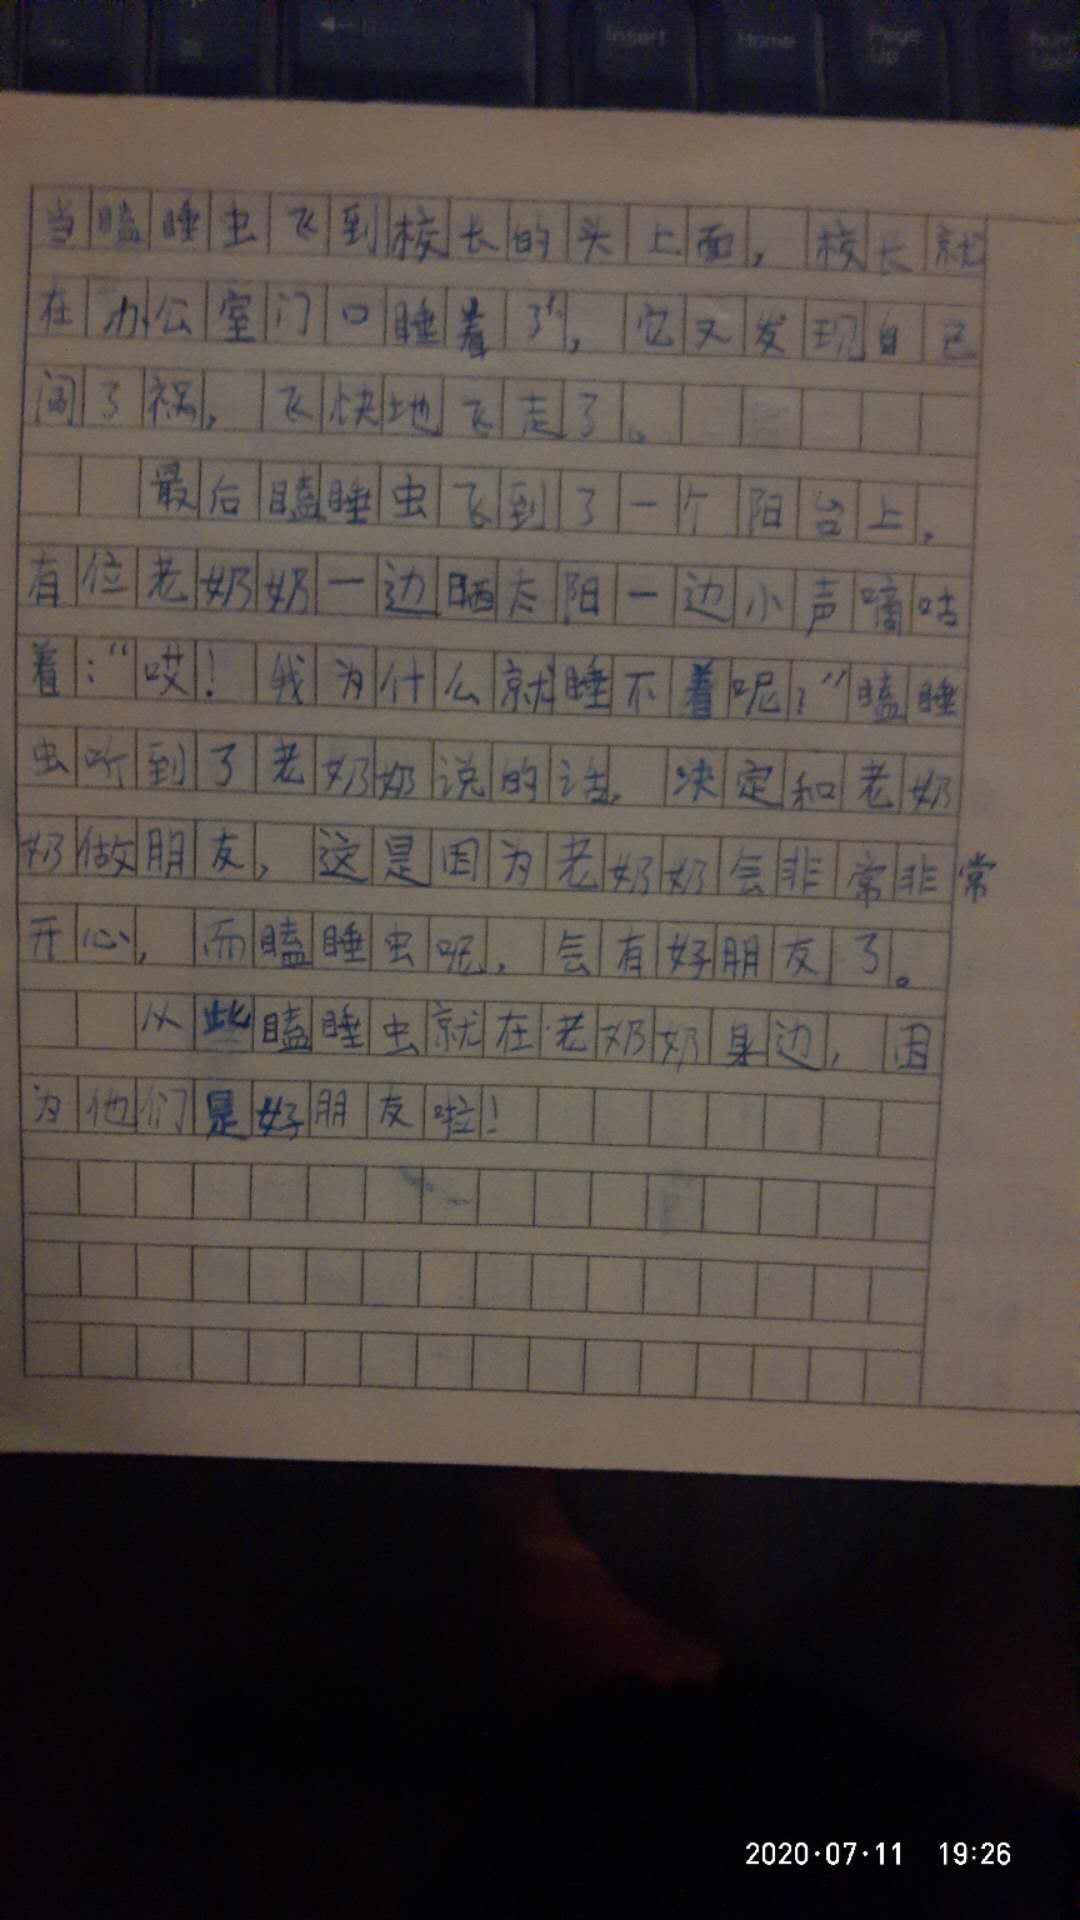 Insert Home Page Up Num Lock
当瞌睡虫飞到校长的头上面，校长就
在办公室门口睡着了，它又发现自己
闯了祸，飞快地飞走了。
最后瞌睡虫飞到了一个阳台上，
有位老奶奶一边晒太阳一边小声嘀咕
着：“哎！我为什么就睡不着呢？”瞌睡
虫听到了老奶奶说的话，决定和老奶
奶做朋友，这是因为老奶奶会非常非常
开心，而瞌睡虫呢，会有好朋友了。
从些瞌睡虫就在老奶奶身边，因
为他们是好朋友啦！
2020·07·11 19:26